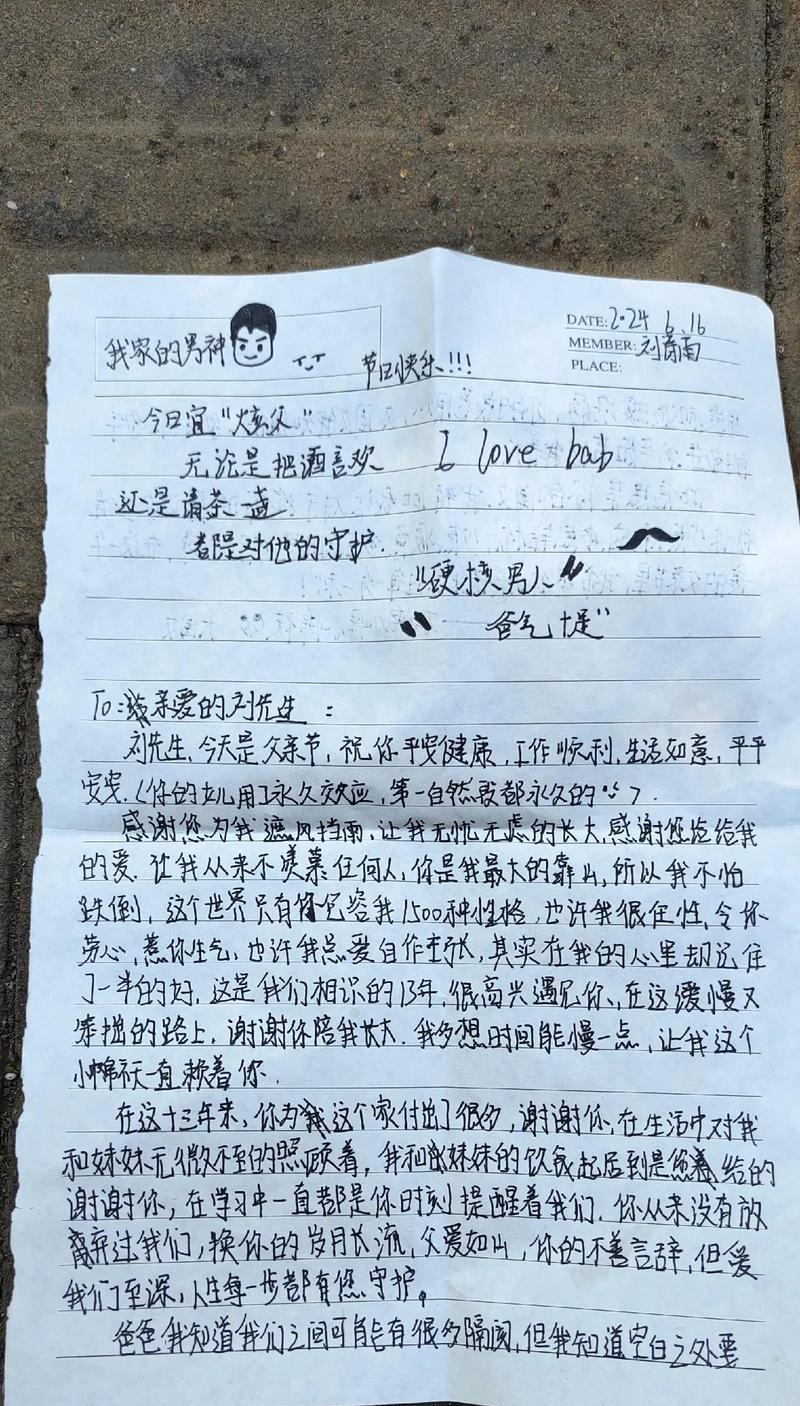 我家的男神
节日快乐!!!
DATE: 2024 6.16
MEMBER: 刘南
PLACE:
今日宜“炫父”
无论是把酒言欢
I love bab
还是清茶一盏
都是对他的守护.
“硬核男人”
“爸气十足”
To:亲爱的刘先生:
刘先生,今天是父亲节,祝你平安健康,工作顺利,生活如意,平平
安安.(你的女儿用了永久效应,第一自然段都永久的).
感谢您为我遮风挡雨,让我无忧无虑的长大,感谢您给我
的爱.让我从来不羡慕任何人,你是我最大的靠山,所以我不怕
跌倒,这个世界只有你包容我1500种性格,也许我很任性,令你
劳心,惹你生气,也许我总爱自作主张,其实在我的心里却记住
了一半的好,这是我们相识的13年,很高兴遇见你,在这漫慢又
笨拙的路上,谢谢你陪我长大.我多想时间能慢一点,让我这个
小棉袄一直赖着你.
在这十三年来,你为这个家付出了很多,谢谢你,在生活中对我
和妹妹无微不至的照顾着,我和妹妹的饮食起居到是您给的
谢谢你,在学习中一直都是你时刻提醒着我们.你从来没有放
弃过我们,换你的岁月长流,父爱如山,你的不善言辞,但爱
我们至深,人生每一步都有您守护。
爸爸我知道我们之间可能有很多隔阂,但我知道空白之处要